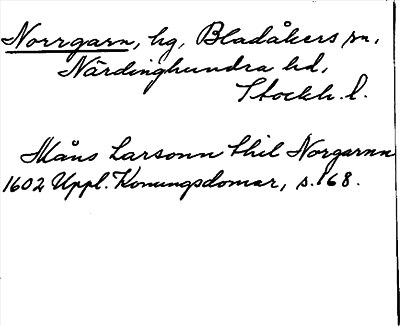 Norrgarn, hg, Bladåkers sn,
Närdinghundra hd,
Stockh. l.
Måns Larsonn thil Norgarnn
1602 Uppl. Konungsdomar, s. 168.